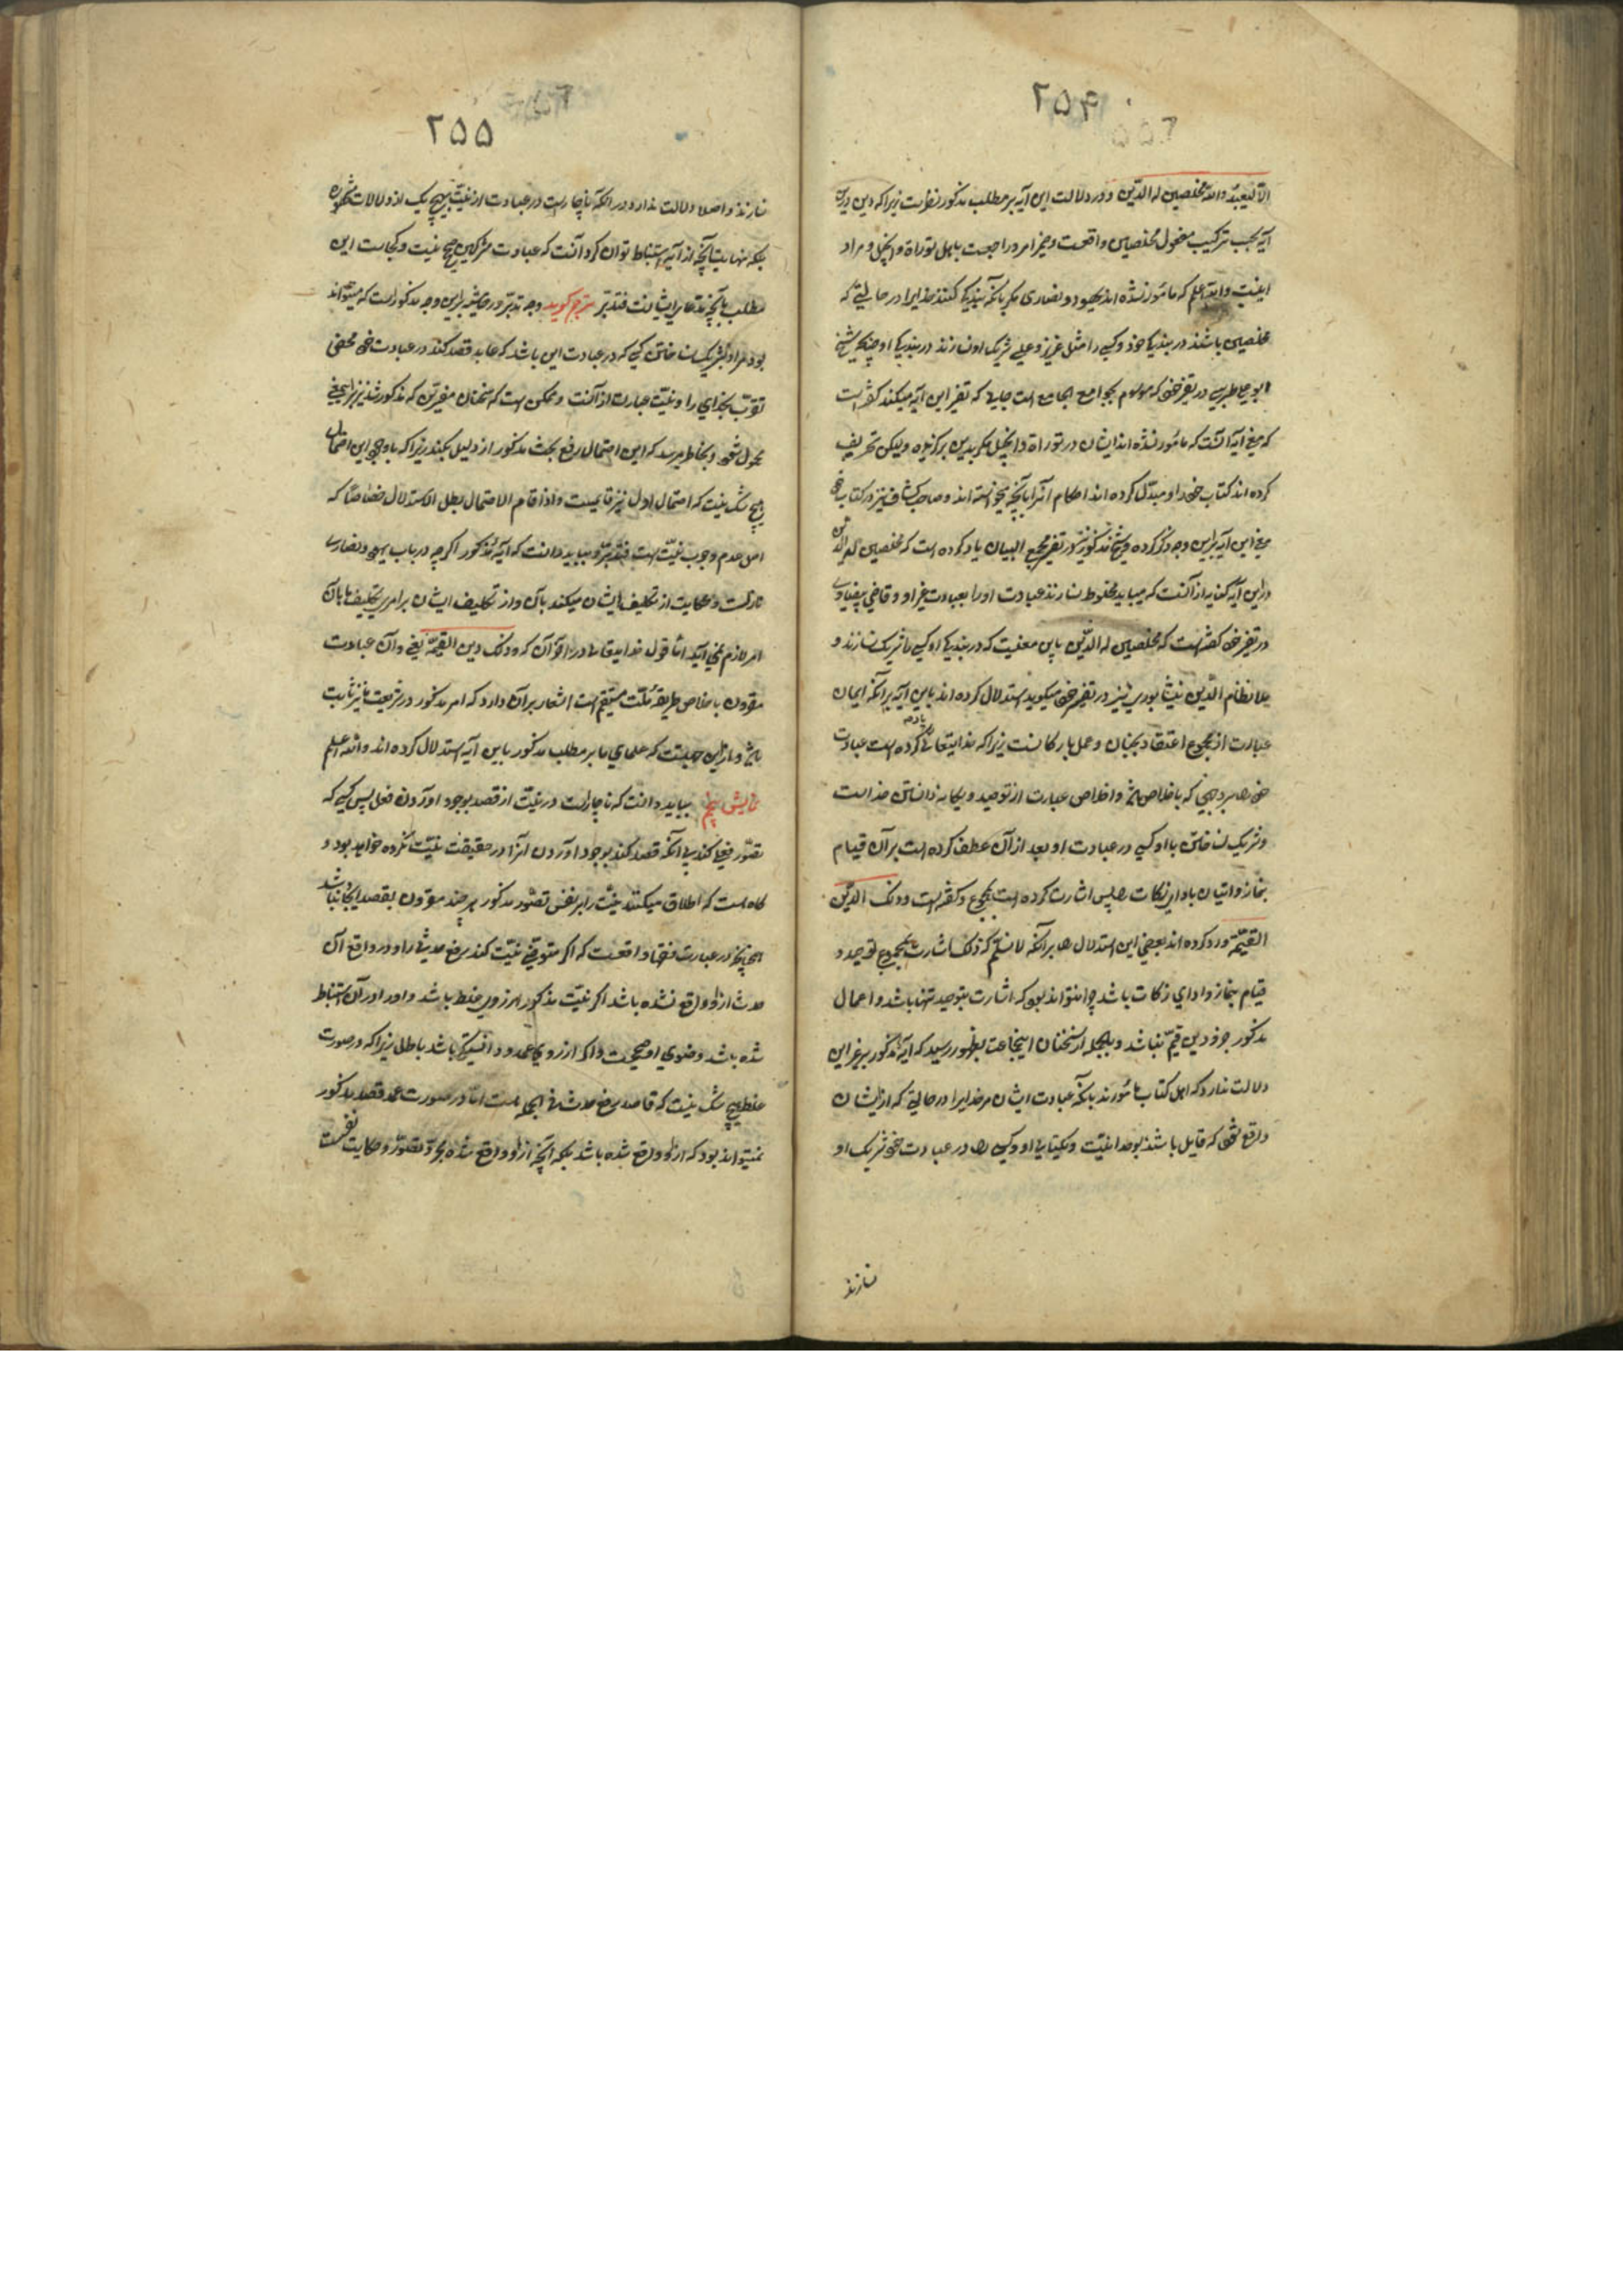 ۲۵۴
الّا لیعبدوا اللّه مخلصین له الدّین و در دلالت این آیه بر مطلب مذکور نظرست زیرا که دین درین
آیه بحسب ترکیب مفعول مخلصین واقعست و ضمیر امروا راجعست باهل توراة و انجیل و مراد
اینست واللّه اعلم که مأمور نشده اند یهود و نصاری مگر بآنکه بندیکی کنند خدایرا در حالتی که
مخلصین باشند در بندیکی خود و کسی را مثل عزیز و عیسی شریک او نسازند در بندیکی او چنانکه شیخ
ابو علی طبرسی در تفسیر خود که موسوم بجوامع الجامع است جایی که تفسیر این آیه میکند گفته است
که معنی آیه آنست که مأمور نشده اند ایشان در توراة و انجیل مگر بدین برگزیده ولیکن تحریف
کرده اند کتاب خود را و مبدّل کرده اند احکام آنرا بآنچه میخواسته اند و صاحب کشاف نیز در کتاب خود
معنی این آیه برین وجه ذکر کرده و شیخ مذکور نیز در تفسیر مجمع البیان یاد کرده است که مخلصین له الدین
درین آیه کنایه از آنست که میباید مخلوط نسازند عبادت او را بعبادت غیر او و قاضی بیضاوی
در تفسیر خود گفته است که مخلصین له الدّین باین معنیست که در بندیکی او کسی را شریک نسازند و
ملا نظام الدّین نیشابوری نیز در تفسیر خود میگوید استدلال کرده اند باین آیه بر آنکه ایمان
عبارت از مجموع اعتقاد بجنان و عمل بارکانست زیرا که خدایتعالی یاد کرده است عبادت
خود را بر وجهی که باخلاص باشد و اخلاص عبارت از توحید و یکانه دانستن خداست
و شریک نساختن با او کسی در عبادت او بعد از آن عطف کرده است بر آن قیام
بنماز و اتیان بادای زکات را پس اشارت کرده است بمجموع و گفته است و ذلک الدّین
القیّمة ورد کرده اند بعضی این استدلال را بر آنکه لا نسلّم که ذلک اشارت بمجموع توحید و
قیام بنماز و ادای زکات باشد چرا نتواند بود که اشارت بتوحید تنها باشد و اعمال
مذکور جزو دین قیّم نباشد و بالجمله از سخنان اینجماعت بظهور رسید که آیهٔ مذکور بر غیر این
دلالت ندارد که اهل کتاب مأمورند بآنکه عبادت ایشان مر خدایرا در حالتی که از ایشان
واقع شود که قایل باشند بوحدانیّت و یکتایی او و کسی را در عبادت خود شریک او
نسازند
۲۵۵
نسازند و اصلا دلالت ندارد بر آنکه ناچارست در عبادت از نیّت بهیچ یک از دلالات مشهوره
بلکه نهایت آنچه از آیه استنباط توان کرد آنست که عبادت مشرکین صحیح نیست و کجاست این
مطلب بآنچه مدّعای ایشانست فتدبّر مترجم گوید وجه تدبّر در حاشیه برین وجه مذکورست که میتواند
بود مراد بشریک نساختن کسی که در عبادت این باشد که عابد قصد کند در عبادت خود محض
تقرّب بخدای را و نیّت عبارت از آنست و ممکن است که سخنان مفسّرین که مذکور شد نیز برین معنی
محمول شود و بخاطر میرسد که این احتمال رفع بحث مذکور از دلیل نمیکند زیرا که با وجود این احتمال
هیچ شک نیست که احتمال اول نیز قایمست و اذا قام الاحتمال بطل الاستدلال خصوصًا که
اصل عدم وجوب نیّت است فتدبّر و بباید دانست که آیهٔ مذکور اگرچه در باب یهود و نصاری
نازلست و حکایت از تکلیف ایشان میکند بآن و از تکلیف ایشان بر امری تکلیف ما بآن
امر لازم نمی آید امّا قول خدایتعالی در قرآن که و ذلک دین القیّمة یعنی و آن عبادت
مقرون باخلاص طریقهٔ ملّت مستقیم است اشعار بر آن دارد که امر مذکور در شریعت ما نیز ثابت
باشد و ازین جهتست که علمای ما بر مطلب مذکور باین آیه استدلال کرده اند واللّه اعلم
نمایش پنجم بباید دانست که ناچارست در نیّت از قصد بوجود آوردن فعل پس کسی که
تصوّر فعل کند بی آنکه قصد کند بوجود آوردن آنرا در حقیقت نیّت نکرده خواهد بود و
گاه است که اطلاق میکنند نیّت را بر نفس تصوّر مذکور هر چند مقرون بقصد ایجاد نباشد
همچنانچه در عبارت فقها واقعست که اگر متوضّی نیّت کند رفع حدثی را و در واقع آن
حدث از او واقع نشده باشد اگر نیّت مذکور از روی غلط باشد و او را در آن استنباط
شده باشد وضوی او صحیحست و اگر از روی عمد و دانستگی باشد باطل زیرا که در صورت
غلط هیچ شک نیست که قاصد رفع حدث فی الجمله هست امّا در صورت عمد قصد مذکور
نمیتواند بود که از او واقع شده باشد بلکه آنچه از او واقع شده مجرّد تصوّر و حکایت نفسست